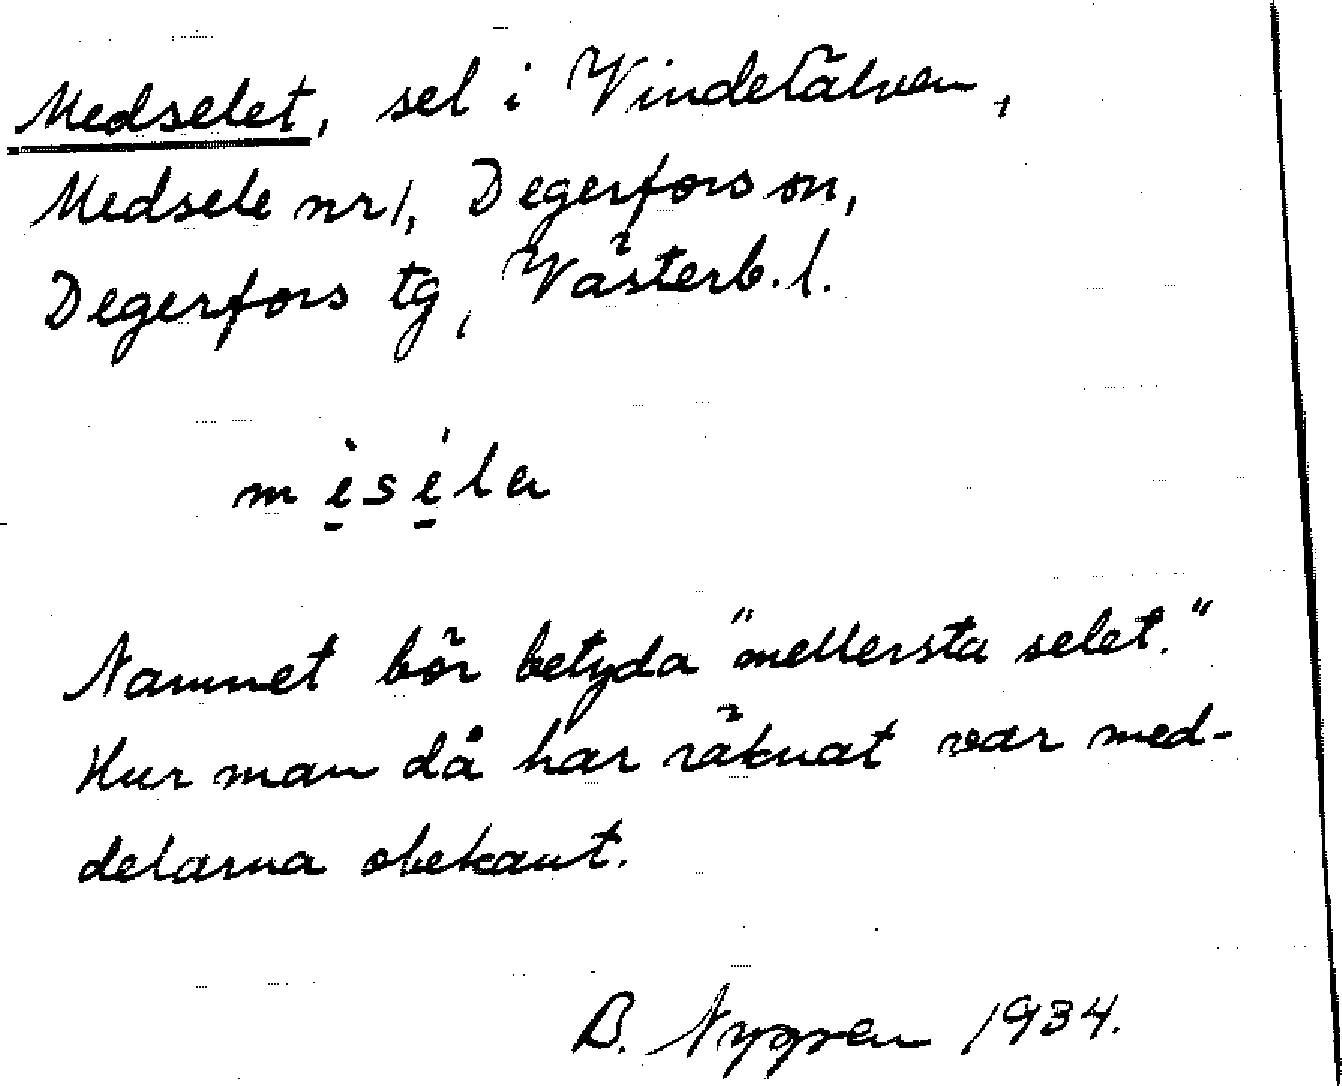 Medselet, sel i Vindelälven,
Medsele nr 1, Degerfors sn,
Degerfors tg, Västerb. l.
mèséla
Namnet bör betyda "mellersta selet."
Hur man då har räknat var med-
delarna obekant.
B. Nygren 1934.